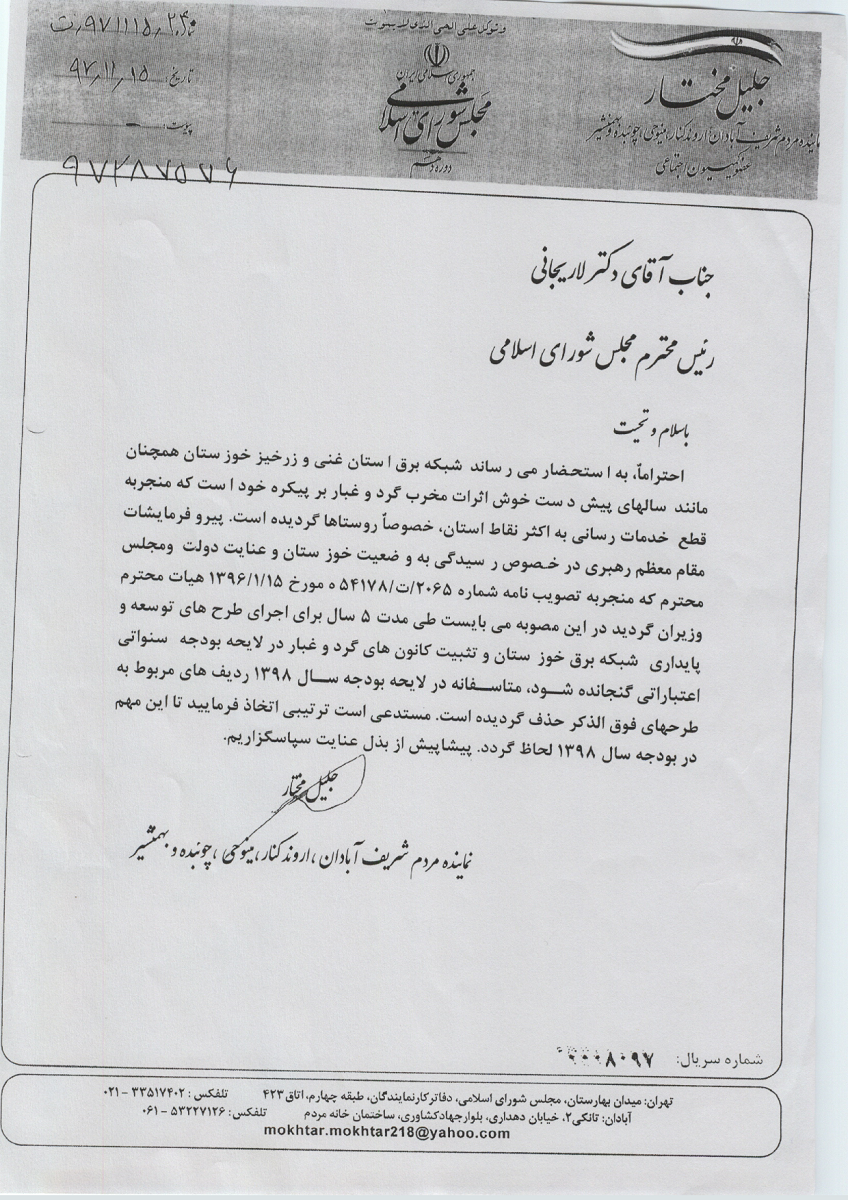 وتوکل علی الحی الذی لا یموت
جمهوری اسلامی ایران
مجلس شورای اسلامی
دوره دهم
جلیل مختار
نماینده مردم شریف آبادان، اروندکنار، مینوحی، چوئبده و بهمنشیر
عضو کمیسیون اجتماعی
تاریخ: ۹۷٫۱۱٫۱۵
پیوست:
۹۷۲۸۷۵۷۶
جناب آقای دکتر لاریجانی
رئیس محترم مجلس شورای اسلامی
باسلام و تحیت
احتراماً، به استحضار می رساند شبکه برق استان غنی و زرخیز خوزستان همچنان
مانند سالهای پیش دست خوش اثرات مخرب گرد و غبار بر پیکره خود است که منجربه
قطع خدمات رسانی به اکثر نقاط استان، خصوصاً روستاها گردیده است. پیرو فرمایشات
مقام معظم رهبری در خصوص رسیدگی به وضعیت خوزستان و عنایت دولت ومجلس
محترم که منجربه تصویب نامه شماره ۲۰۶۵/ت/۵۴۱۷۸ ه مورخ ۱۳۹۶/۱/۱۵ هیات محترم
وزیران گردید در این مصوبه می بایست طی مدت ۵ سال برای اجرای طرح های توسعه و
پایداری شبکه برق خوزستان و تثبیت کانون های گرد و غبار در لایحه بودجه سنواتی
اعتباراتی گنجانده شود، متاسفانه در لایحه بودجه سال ۱۳۹۸ ردیف های مربوط به
طرحهای فوق الذکر حذف گردیده است. مستدعی است ترتیبی اتخاذ فرمایید تا این مهم
در بودجه سال ۱۳۹۸ لحاظ گردد. پیشاپیش از بذل عنایت سپاسگزاریم.
جلیل مختار
نماینده مردم شریف آبادان، اروندکنار، مینوحی، چوئبده و بهمنشیر
شماره سریال: ۸۰۹۷
تهران: میدان بهارستان، مجلس شورای اسلامی، دفاتر کارنمایندگان، طبقه چهارم، اتاق ۴۲۳ تلفکس: ۳۳۵۱۷۴۰۲ - ۰۲۱
آبادان: تانکی۲، خیابان دهداری، بلوار جهادکشاوری، ساختمان خانه مردم تلفکس: ۵۳۲۲۷۱۲۶ - ۰۶۱
mokhtar.mokhtar218@yahoo.com